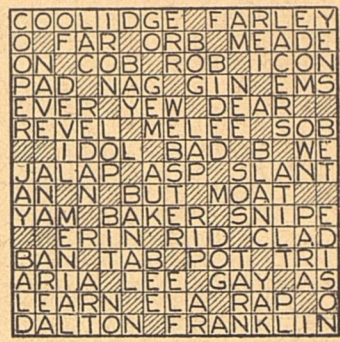 COOLIDGE FARLEY
O FAR ORB MEADE
ON COB ROB ICON
PAD NAG GIN EMS
EVER YEW DEAR
REVEL MELEE SOB
IDOL BAD B WE
JALAP ASP SLANT
AN N BUT MOAT
YAM BAKER SNIPE
ERIN RID CLAD
BAN TAB POT TRI
ARIA LEE GAY AS
LEARN ELA RAP O
DALTON FRANKLIN